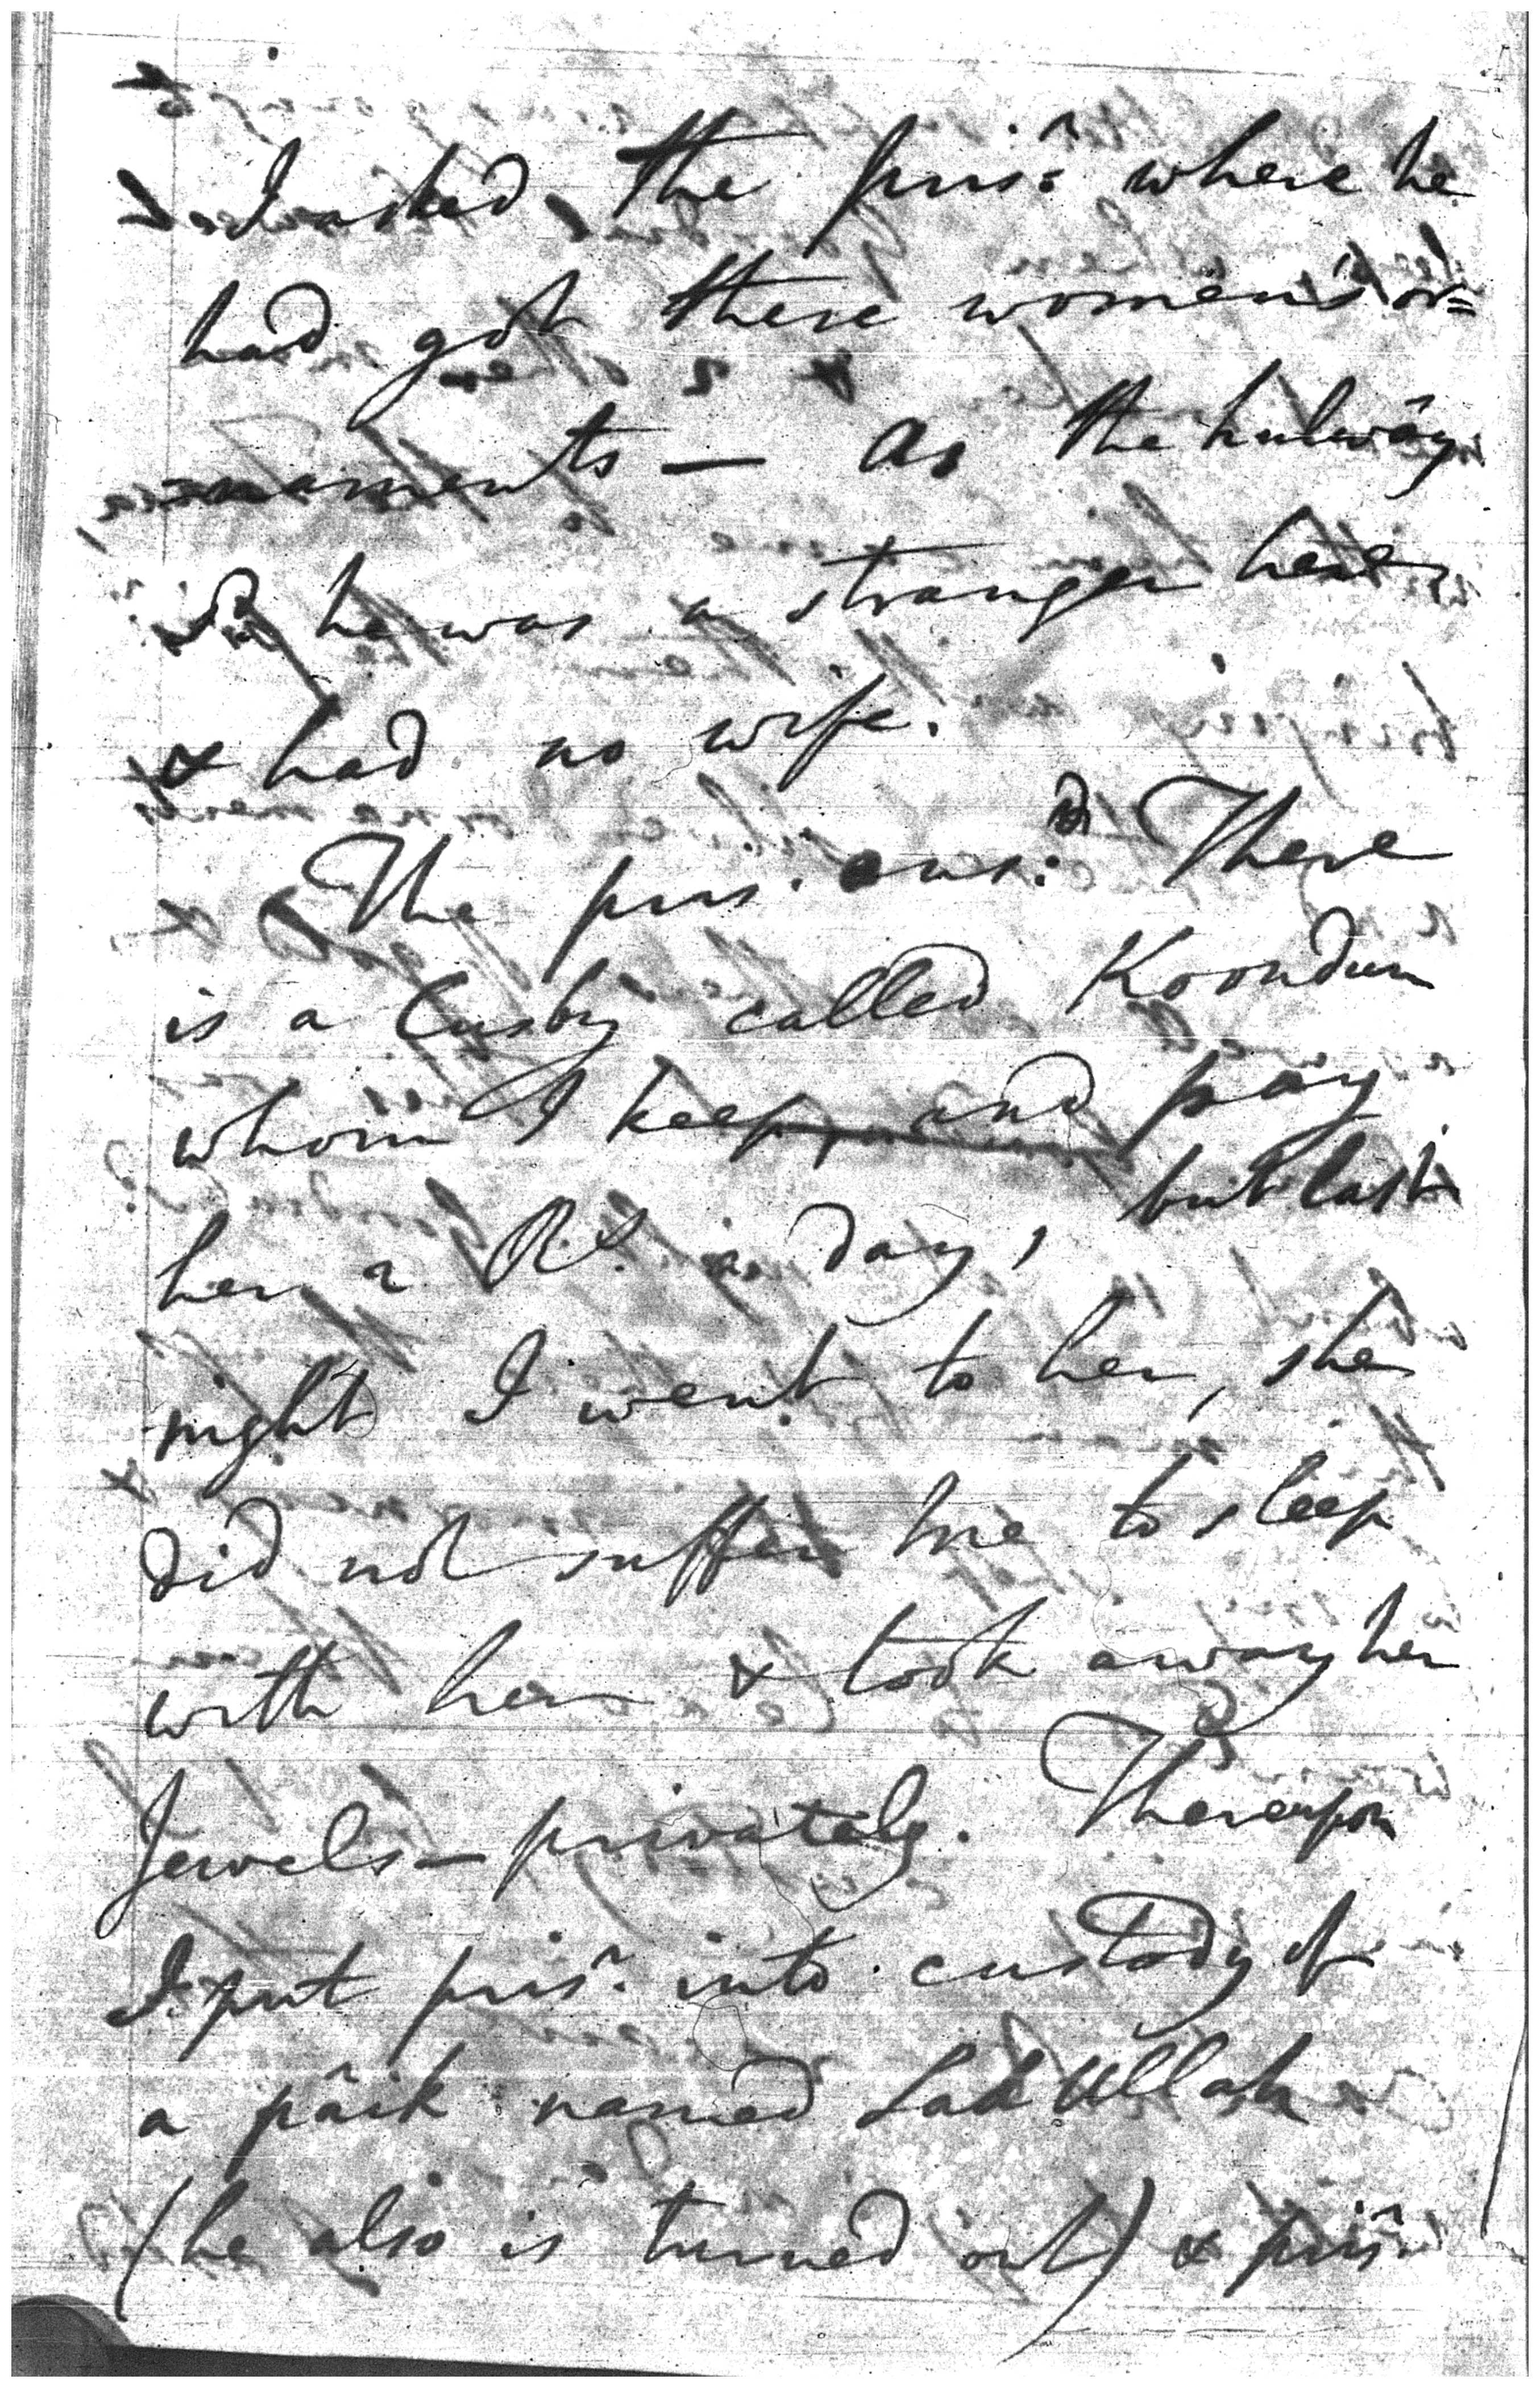 I asked the pris.r where he
had got these women's or=
=naments — As the hulwāy
sd he was a stranger here
& had no wife.
The pris. ans:d There
is a Cusby called Koondun
whom I keep, and pay
her a R.s a day, but last
night I went to her, she
did not suffer me to sleep
with her & took away her
Jewels — privately. Thereupon
I put pris.r into custody of
a pāik named Sad Ullah
(he also is turned out) & pris.r